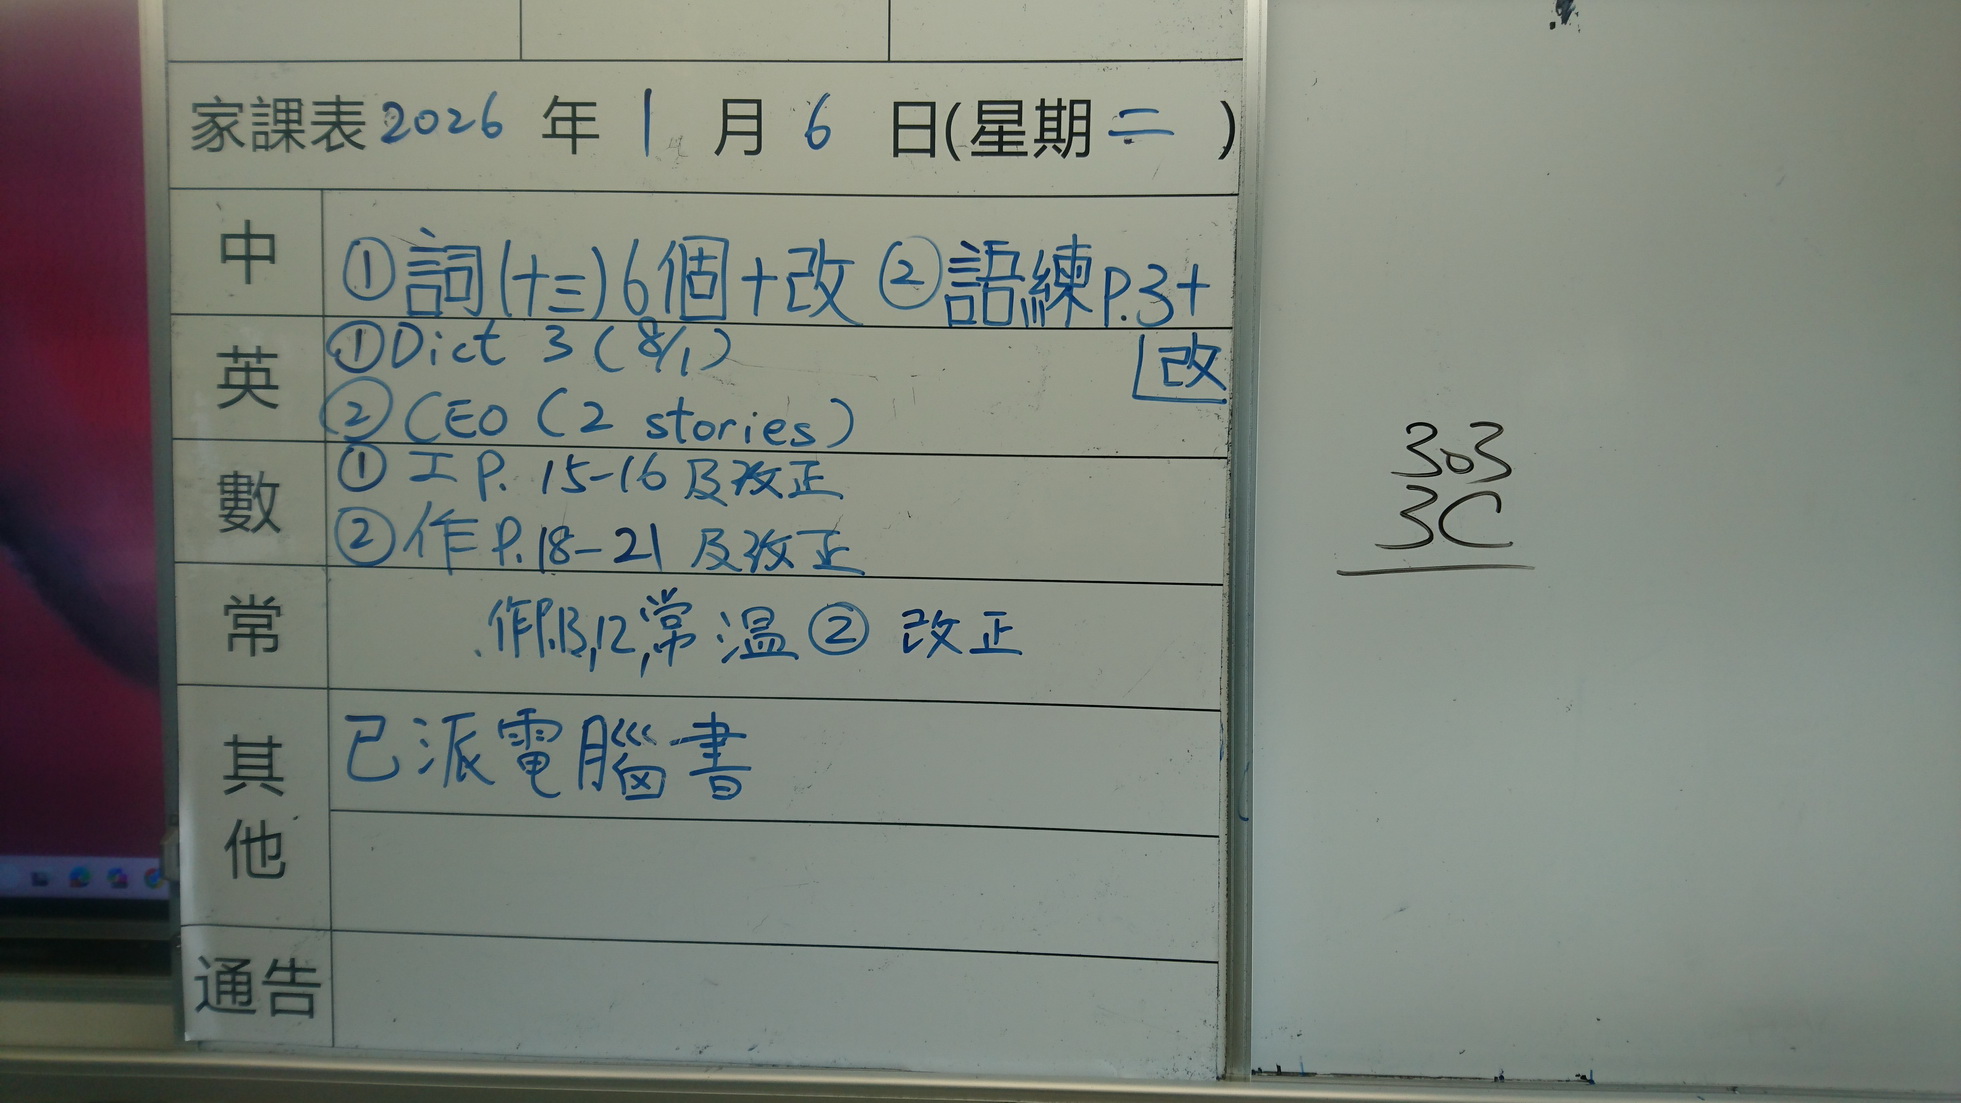 家課表 2026 年 1 月 6 日(星期二)
中 ①詞(十三)6個+改 ②語練P.3+改
英 ①Dict 3 (8/1)
②CEO (2 stories)
數 ①工P. 15-16 及改正
②作P.18-21 及改正
常 作P.13,12,常溫② 改正
其他 已派電腦書
通告
303
3C